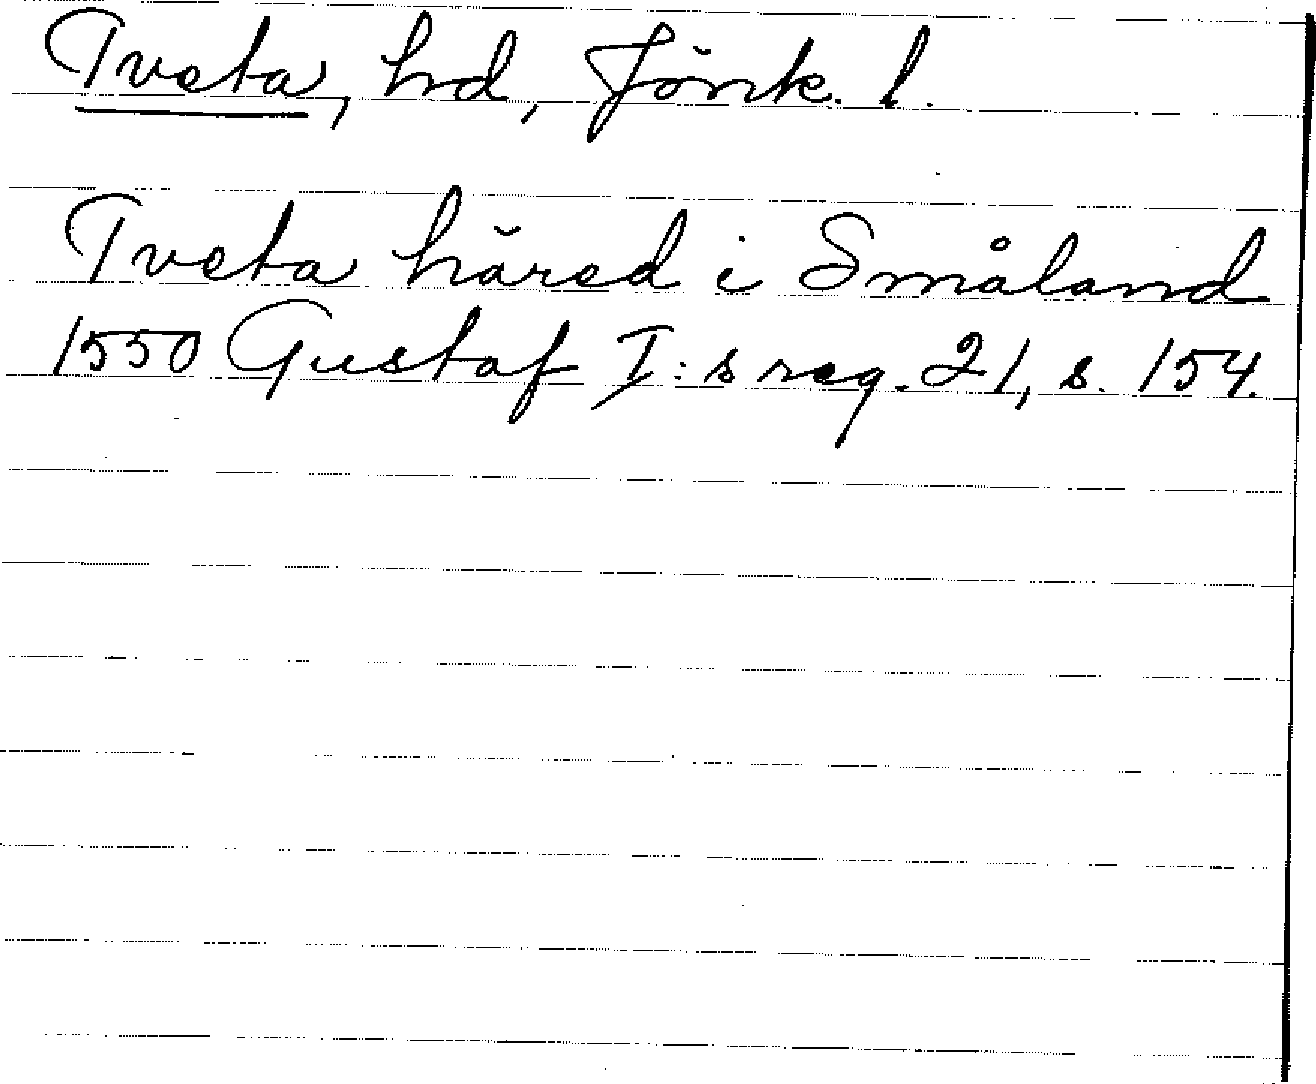 Tveta, hd, Jönk. l.
Tveta härad i Småland
1550 Gustaf I:s reg. 21, s. 154.